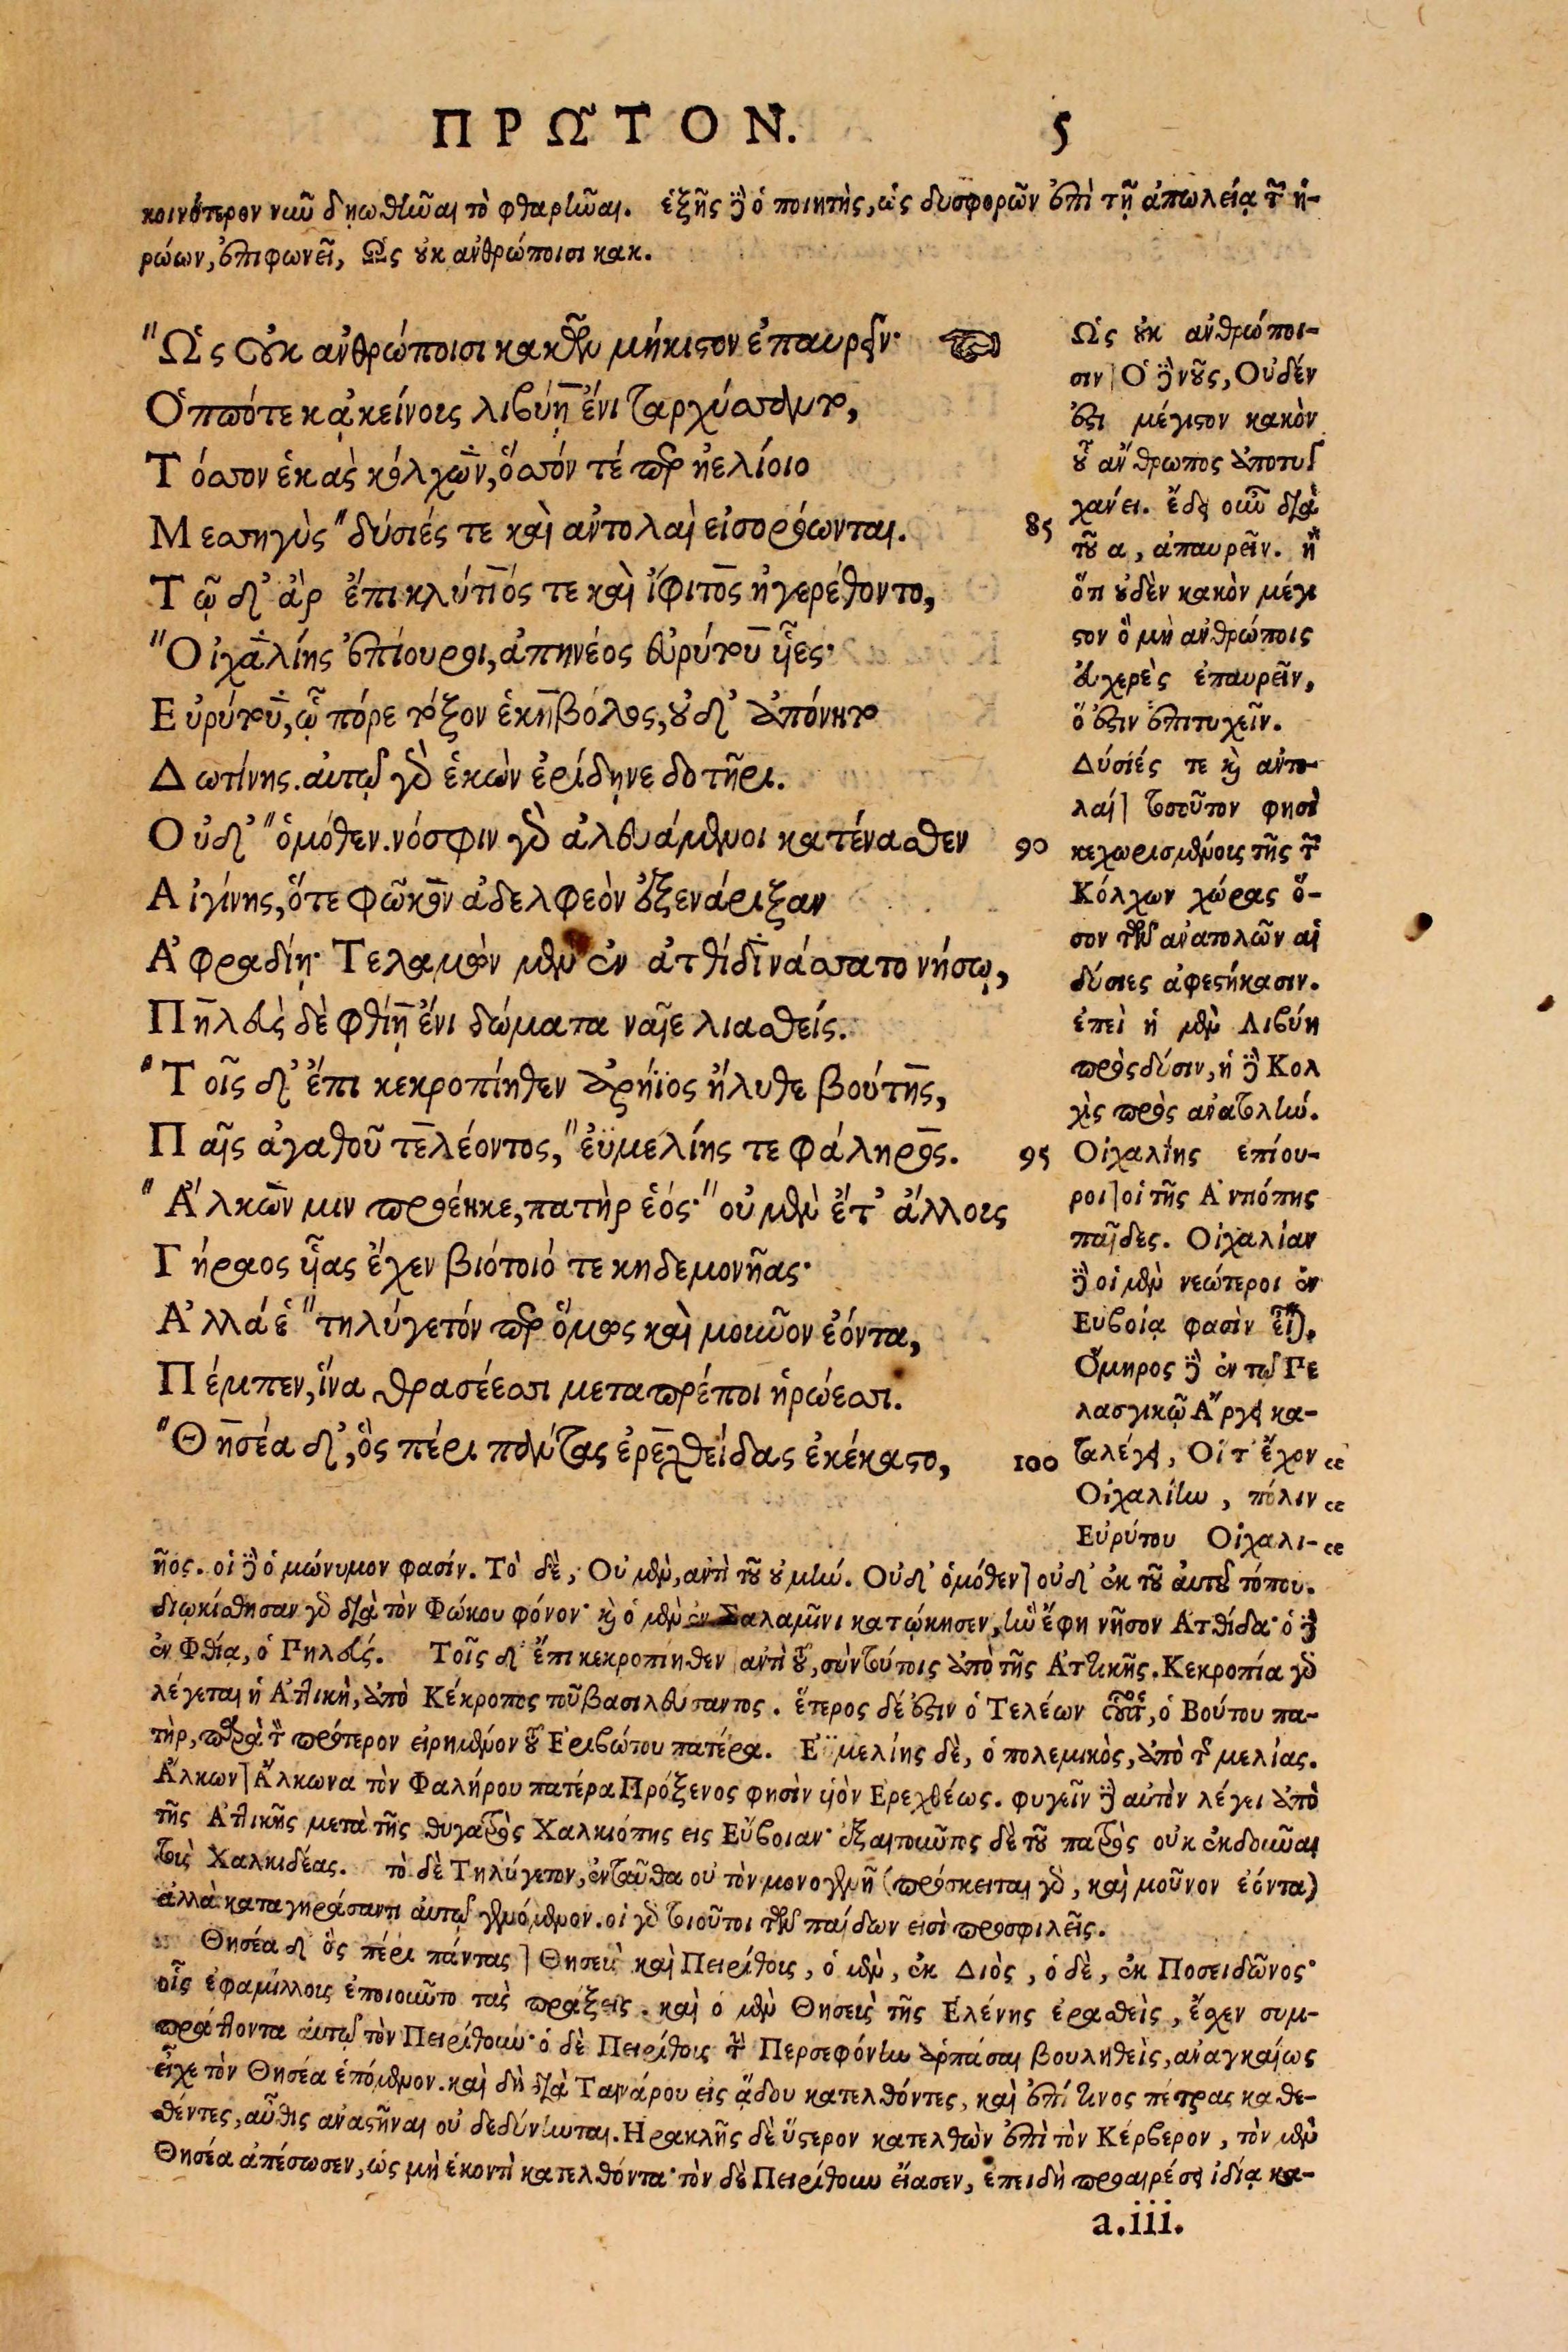 ΠΡΩ͂ΤΟΝ. 5
κοινότερον νιῦ δῃωθίῶαι τὸ φθαρίῶαι. ἑξῆς δὲ ὁ ποιητὴς, ὡς δυσφορῶν ἐπὶ τῇ ἀπωλείᾳ τῶν ἡ-
ρώων, ἐπιφωνεῖ, Ὣς οὐκ ἀνθρώποισι κακ.
"Ὣς οὐκ ἀνθρώποισι κακὸν μήκιστον ἐπαυρεῖν·
Ὁππότε κᾀκείνους λιβύῃ ἔνι ταρχύσαντο,
Τόσσον ἑκὰς κόλχων, ὅσσόν τέ περ ἠελίοιο
Μεσσηγὺς "δύσιές τε καὶ ἀντολαὶ εἰσορόωνται. 85
Τῷ δ' ἄρ ἔπι κλύτιός τε καὶ ἴφιτος ἠγερέθοντο,
"Οἰχαλίης ἐπίουροι, ἀπηνέος εὐρύτου υἷες·
Εὐρύτου, ᾧ πόρε τόξον ἑκηβόλος, οὐδ' ἀπόνητο
Δωτίνης. αὐτῷ γὰρ ἑκὼν ἐρίδηνε δοτῆρι.
Οὐδ' "ὁμόθεν. νόσφιν γὰρ ἀλευάμενοι κατένασθεν 90
Αἰγίνης, ὅτε φῶκον ἀδελφεὸν ἐξενάριξαν
Ἀφραδίῃ· Τελαμὼν μὲν ἐν ἀτθίδι νάσσατο νήσῳ,
Πηλεὺς δὲ φθίῃ ἔνι δώματα ναῖε λιασθείς.
"Τοῖς δ' ἔπι κεκροπίηθεν ἀρήϊος ἤλυθε βούτης,
Παῖς ἀγαθοῦ τελέοντος, "ἐϋμελίης τε φάληρος. 95
"Ἄλκων μιν προέηκε, πατὴρ ἑός· "οὐ μὲν ἔτ' ἄλλους
Γήραος υἷας ἔχεν βιότοιό τε κηδεμονῆας·
Ἀλλά ἑ "τηλύγετόν περ ὅμως καὶ μοιῦον ἐόντα,
Πέμπεν, ἵνα θρασέεσσι μεταπρέποι ἡρώεσσι.
"Θησέα δ', ὃς πέρι πάντας ἐρεχθείδας ἐκέκαστο, 100
Ὣς οὐκ ἀνθρώποι-
σιν] Ὁ δὲ νοῦς, Οὐδέν
ἐστι μέγιστον κακὸν
οὗ ἄνθρωπος ἀποτυγ
χάνει. ἔδει οιῶ διὰ
τοῦ α, ἀπαυρεῖν. ἢ
ὅτι οὐδὲν κακὸν μέγι
στον ὃ μὴ ἀνθρώποις
εὐχερὲς ἐπαυρεῖν,
ὅ ἐστιν ἐπιτυχεῖν.
Δύσιές τε καὶ ἀντο-
λαί] τοσοῦτον φησὶ
κεχωρισμένους τῆς τῶν
Κόλχων χώρας ὅ-
σον τῶν ἀνατολῶν αἱ
δύσιες ἀφεστήκασιν.
ἐπεὶ ἡ μὲν Λιβύη
πρὸς δύσιν, ἡ δὲ Κολ
χὶς πρὸς ἀνατολιώ.
Οἰχαλίης ἐπίου-
ροι] οἱ τῆς Ἀντιόπης
παῖδες. Οἰχαλίαν
δὲ οἱ μὲν νεώτεροι ἐν
Εὐβοίᾳ φασὶν εἶναι,
Ὅμηρος δὲ ἐν τῷ Πε
λασγικῷ Ἄργει κα-
ταλέγει, Οἵ τ' ἔχον
Οἰχαλίιω, πόλιν
Εὐρύτου Οἰχαλι-
ῆος. οἱ δὲ ὁμώνυμον φασίν. Τὸ δὲ, Οὐ μὲν, ἀντὶ τοῦ οὐ μιώ. Οὐδ' ὁμόθεν] οὐδ' ἐκ τοῦ αὐτοῦ τόπου.
διῳκίσθησαν γὰρ διὰ τὸν Φώκου φόνον· καὶ ὁ μὲν ἐν Σαλαμῖνι κατῴκησεν, ἱὼ ἔφη νῆσον Ἀτθίδα· ὁ δὲ
ἐν Φθίᾳ, ὁ Πηλεύς. Τοῖς δ' ἔπι κεκροπίηθεν] ἀντὶ τοῦ, σὺν τούτοις ἀπὸ τῆς Ἀττικῆς. Κεκροπία γὰρ
λέγεται ἡ Ἀττικὴ, ἀπὸ Κέκροπος τοῦ βασιλεύσαντος. ἕτερος δέ ἐστιν ὁ Τελέων οὗτος, ὁ Βούτου πα-
τὴρ, παρὰ τὸν πρότερον εἰρημένον τοῦ Ἐριβώτου πατέρα. Ἐϋμελίης δὲ, ὁ πολεμικὸς, ἀπὸ τῆς μελίας.
Ἄλκων] Ἄλκωνα τὸν Φαλήρου πατέρα Πρόξενος φησὶν υἱὸν Ἐρεχθέως. φυγεῖν δὲ αὐτὸν λέγει ἀπὸ
τῆς Ἀττικῆς μετὰ τῆς θυγατρὸς Χαλκιόπης εἰς Εὔβοιαν· ἐξαιτοιῦτος δὲ τοῦ πατρὸς οὐκ ἐκδοιῦαι
τοὺς Χαλκιδέας. τὸ δὲ Τηλύγετον, ἐνταῦθα οὐ τὸν μονογενῆ (πρόσκειται γὰρ, καὶ μοῦνον ἐόντα)
ἀλλὰ καταγηράσαντι αὐτῷ γενόμενον. οἱ γὰρ τοιοῦτοι τῶν παίδων εἰσὶ προσφιλεῖς.
Θησέα δ' ὃς πέρι πάντας] Θησεὺς καὶ Πειρίθους, ὁ μὲν, ἐκ Διὸς, ὁ δὲ, ἐκ Ποσειδῶνος·
οἷς ἐφαμίλλους ἐποιοιῦτο τὰς πράξεις. καὶ ὁ μὲν Θησεὺς τῆς Ἑλένης ἐρασθεὶς, ἔσχεν συμ-
πράττοντα αὐτῷ τὸν Πειρίθοιω· ὁ δὲ Πειρίθους τὴν Περσεφόνιω ἁρπάσαι βουληθεὶς, ἀναγκαίως
εἶχε τὸν Θησέα ἑπόμενον. καὶ δὴ διὰ Ταινάρου εἰς ᾅδου κατελθόντες, καὶ ἐπί τινος πέτρας καθε-
θέντες, αὖθις ἀναστῆναι οὐ δεδύνιωται. Ἡρακλῆς δὲ ὕστερον κατελθὼν ἐπὶ τὸν Κέρβερον, τὸν μὲν
Θησέα ἀπέσωσεν, ὡς μὴ ἑκοντὶ κατελθόντα· τὸν δὲ Πειρίθοιω εἴασεν, ἐπειδὴ προαιρέσει ἰδίᾳ κα-
a.iii.